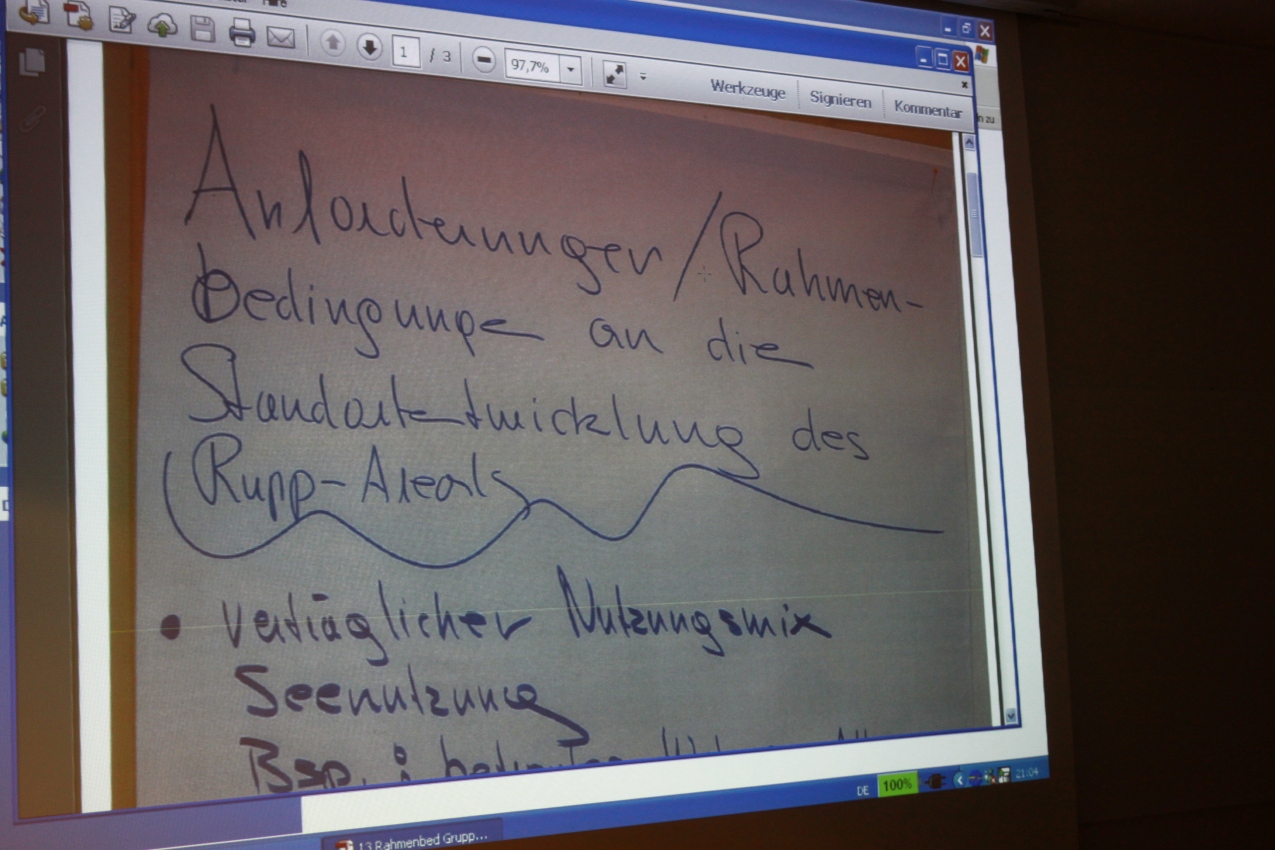 1 / 3
97,7%
Werkzeuge
Signieren
Kommentar
n zu
Anforderungen/Rahmen-
bedingunge an die
Standortentwicklung des
Rupp-Areals
• verträglicher Nutzungsmix
Seenutzung
Bsp.:
DE
100%
21:04
13 Rahmenbed Grupp...